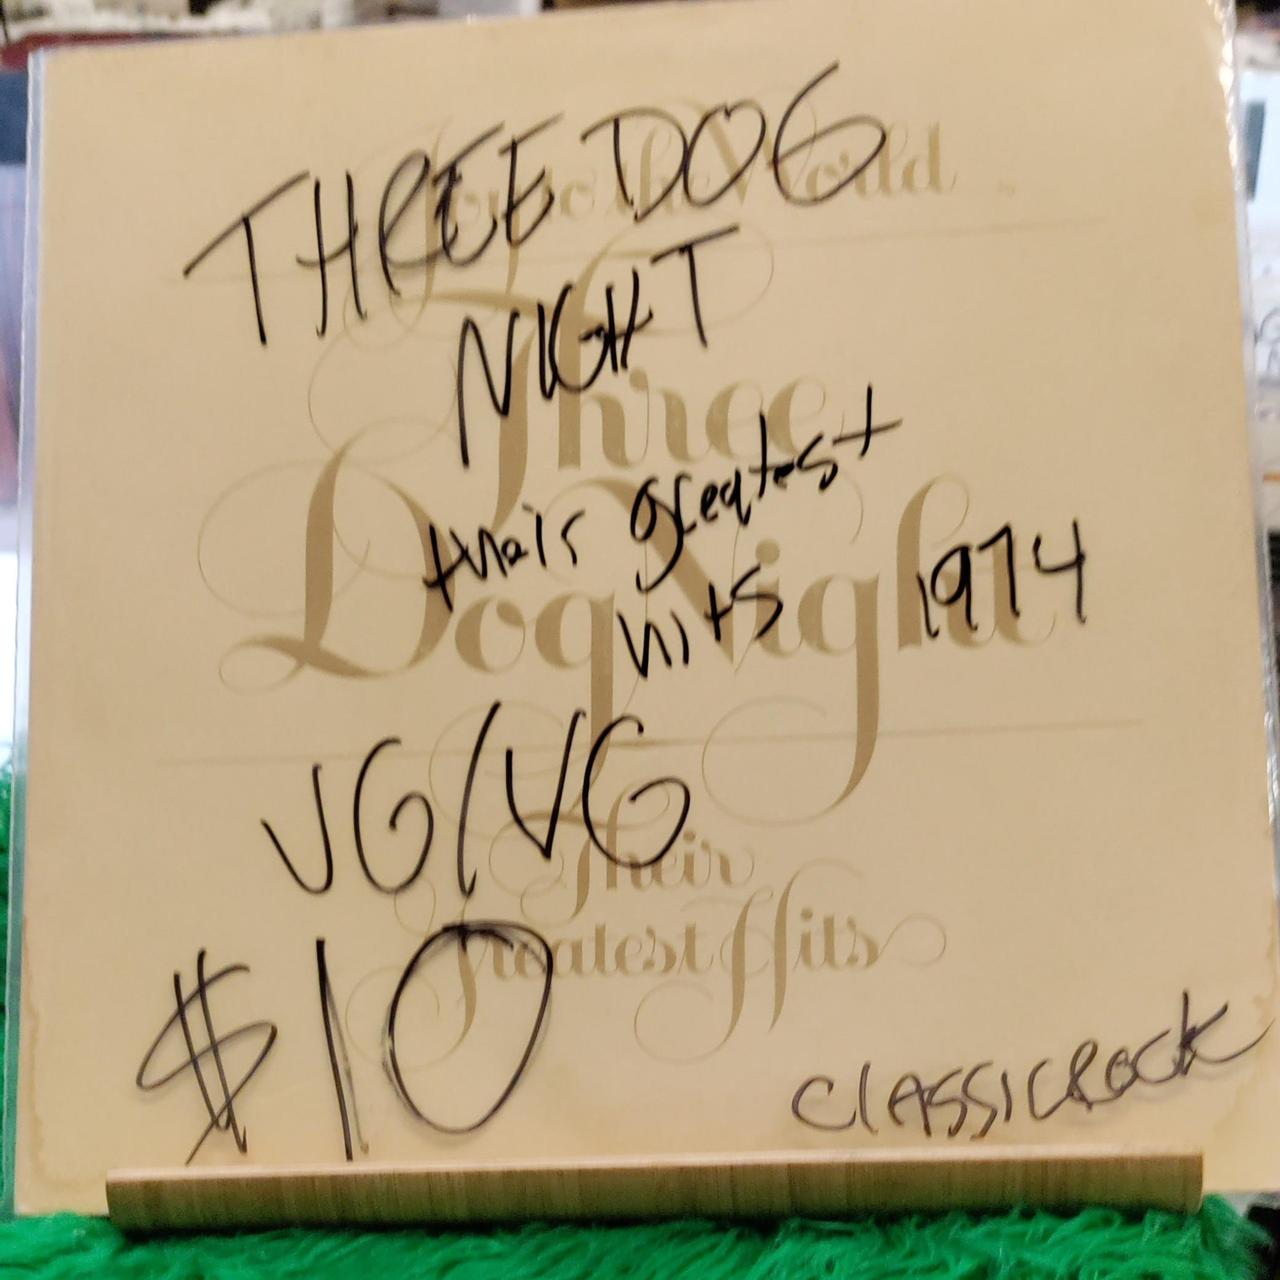 THREE DOG
NIGHT
their greatest
hits 1974
VG/VG
$10
CLASSIC ROCK
Joy to the World
Three
Dog Night
Their
Greatest Hits